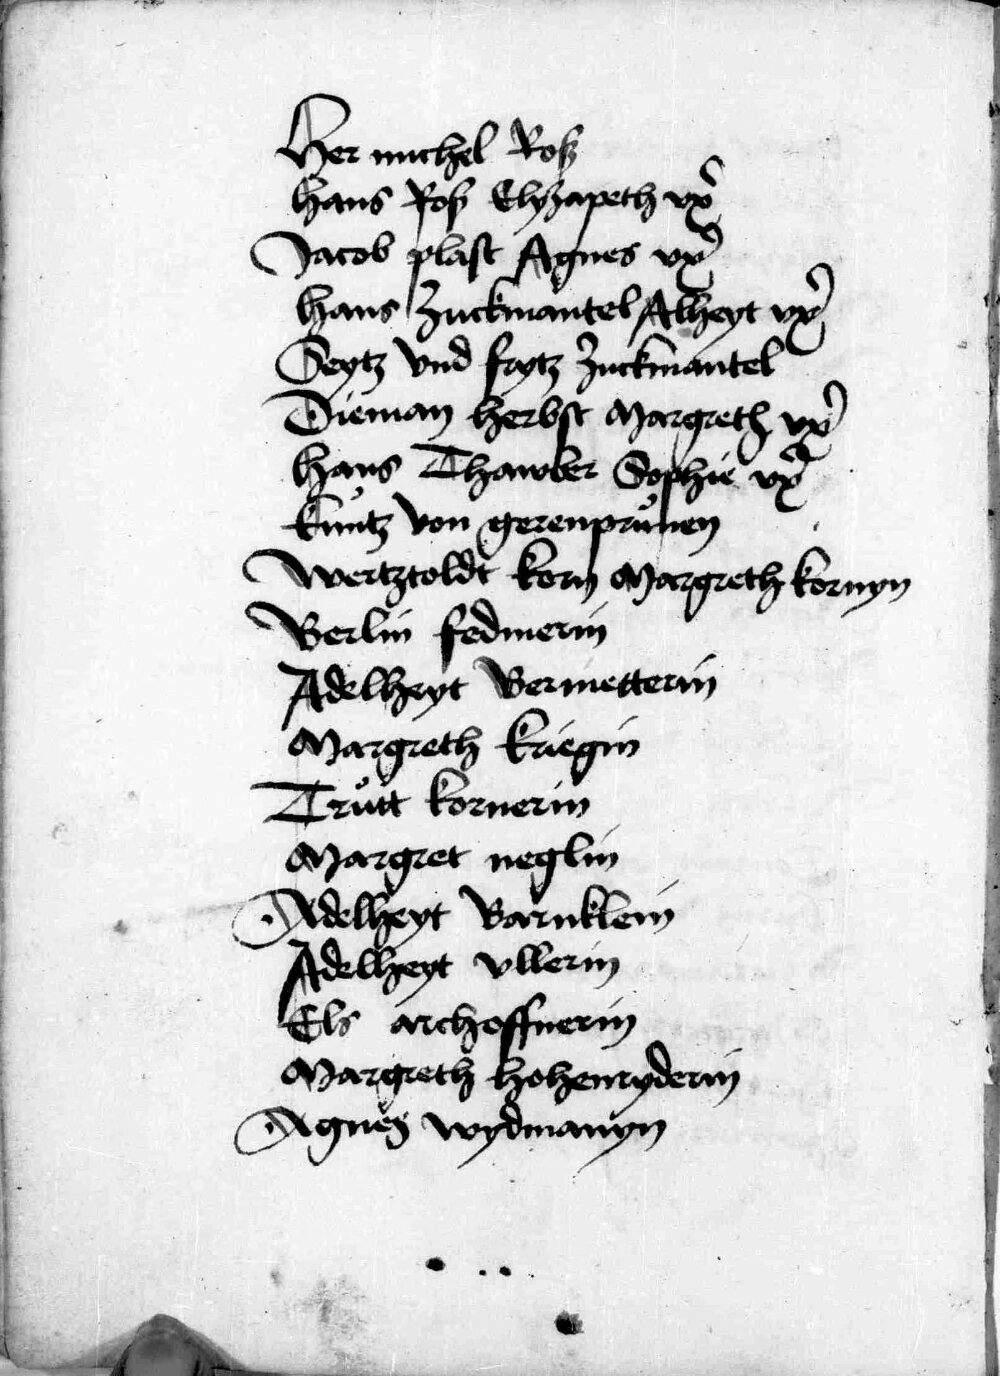 Her michel Roß
hans Roß Elyzapeth vx̄
Jacob plast Agnes vx̄
hans Zuckmantel Alheyt vx̄
Seytz vnd frytz Zuckmantel
Dieman herbst Margreth vx̄
hans Thawber Sophie vx̄
kuͦntz von gerenpruͦnen
Wertztoldt korn Margreth kornyn
Berlin fedmerin
Adelheyt Bermetterin
Margreth kriegin
Truͦtt kornerin
Margret neglin
Adelheyt Barnklein
Adelheyt vllerin
Els archoffnerin
Margreth hohenryderin
Agnes wydmanyn